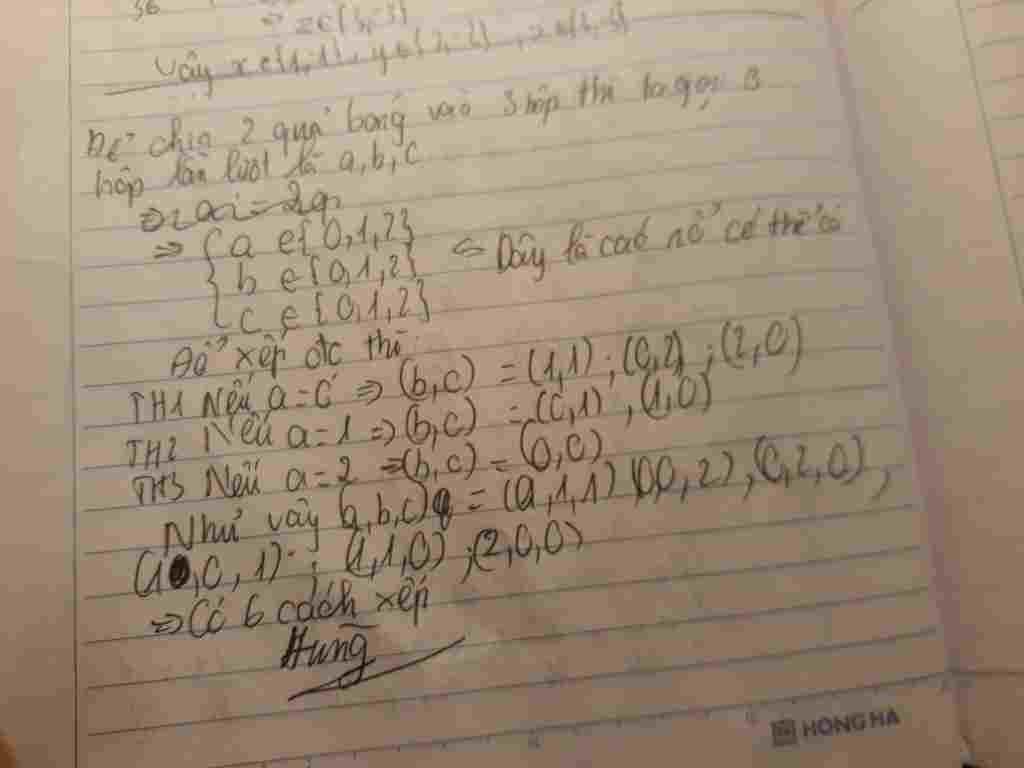 36
⇒ z ∈ {3,-3}
Vậy x ∈ {1,-1}, y ∈ {2,-2}, z ∈ {3,-3}
Để chia 2 quả bóng vào 3 hộp thì ta gọi 3
hộp lần lượt là a, b, c
⇒ { a ∈ {0,1,2}
{ b ∈ {0,1,2} ⇐ Đây là có thể có
{ c ∈ {0,1,2}
Để xếp đc thì
TH1 Nếu a=0 ⇒ (b,c) = (1,1) ; (0,2) ; (2,0)
TH2 Nếu a=1 ⇒ (b,c) = (0,1) , (1,0)
TH3 Nếu a=2 ⇒ (b,c) = (0,0)
Như vậy (a,b,c) = (0,1,1) (0,0,2), (0,2,0),
(1,0,1) ; (1,1,0) ; (2,0,0)
⇒ Có 6 cách xếp
Hưng
HONG HA